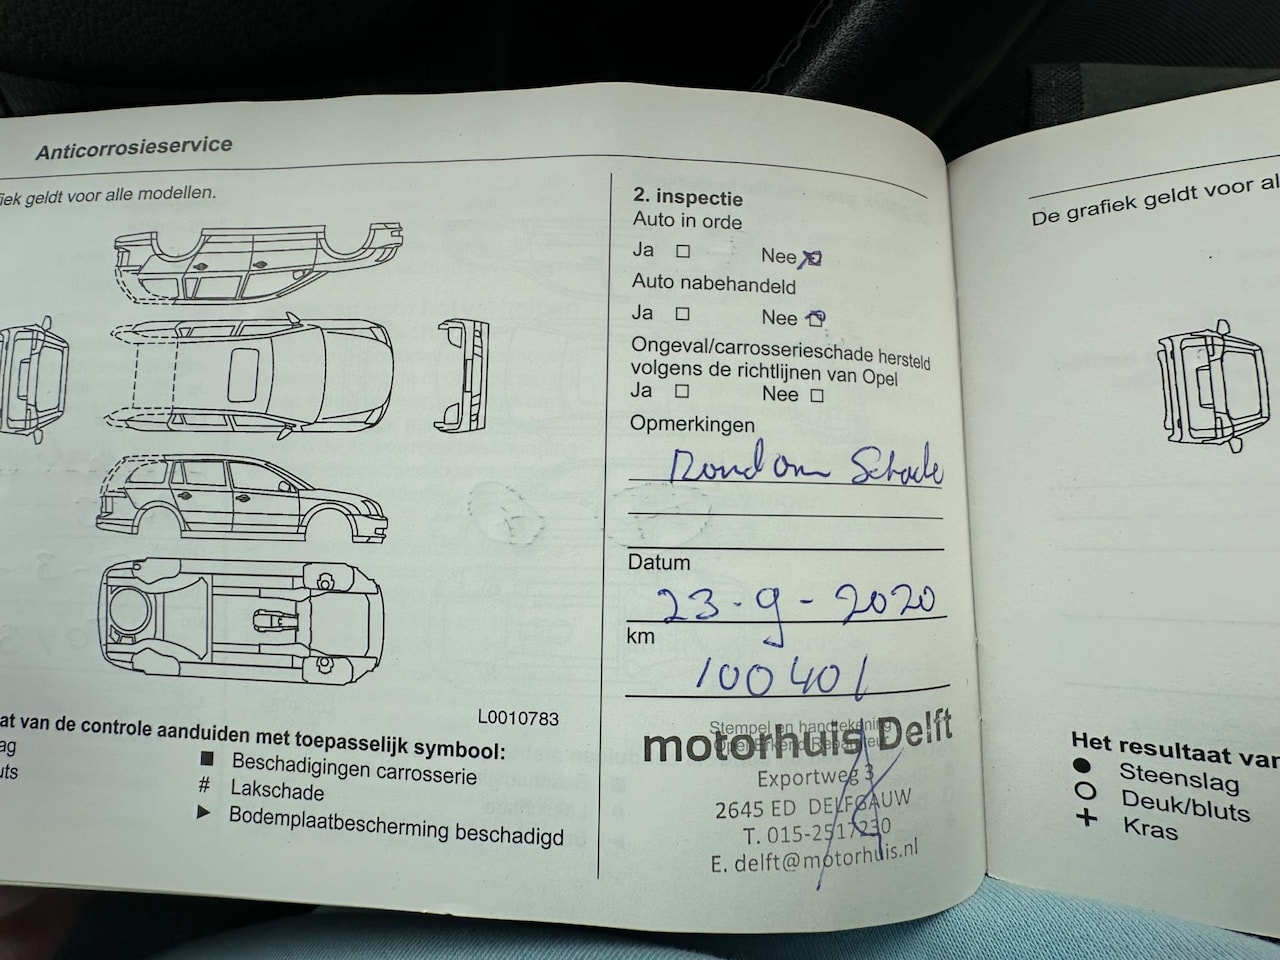 Anticorrosieservice
fiek geldt voor alle modellen.
L0010783
at van de controle aanduiden met toepasselijk symbool:
ag
uts
■ Beschadigingen carrosserie
# Lakschade
▶ Bodemplaatbescherming beschadigd
2. inspectie
Auto in orde
Ja □ Nee ☒
Auto nabehandeld
Ja □ Nee □
Ongeval/carrosserieschade hersteld
volgens de richtlijnen van Opel
Ja □ Nee □
Opmerkingen
Rondom Schade
Datum
23-9-2020
km
100401
Stempel en handtekening
Opel Erkend Reparateur
motorhuis Delft
Exportweg 3
2645 ED DELFGAUW
T. 015-2517230
E. delft@motorhuis.nl
De grafiek geldt voor al
Het resultaat van
● Steenslag
○ Deuk/bluts
+ Kras